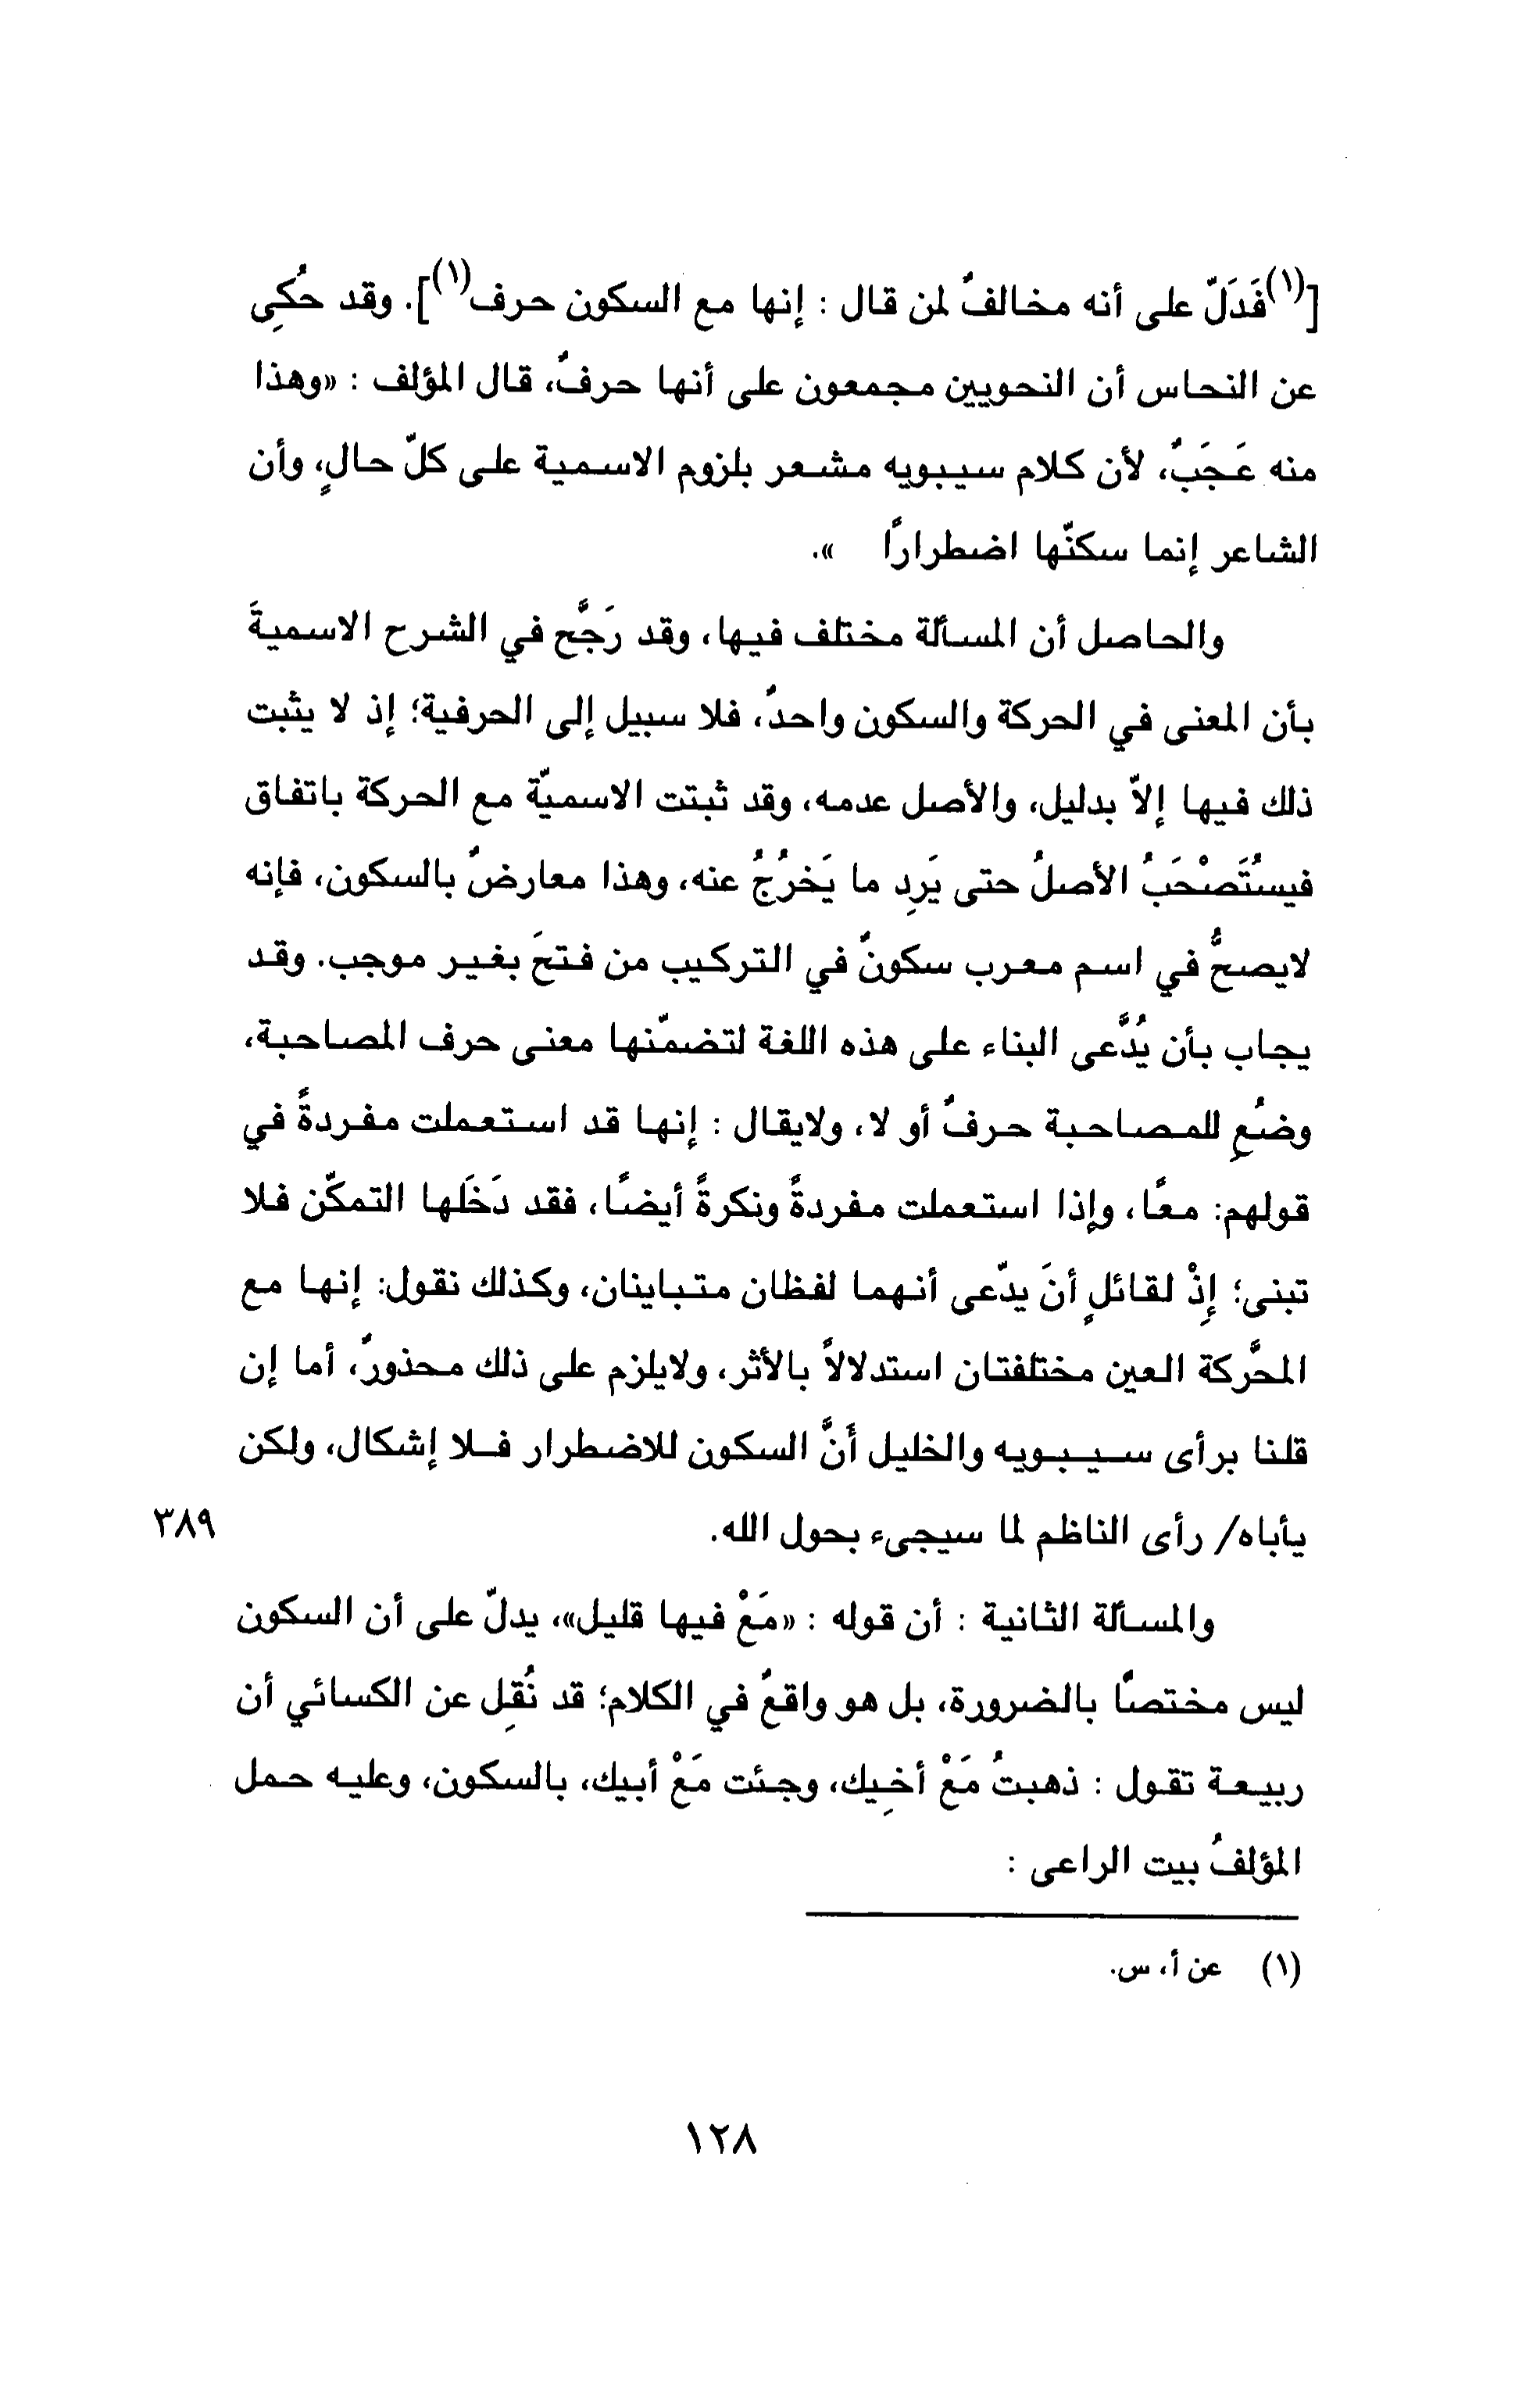 [(١)فَدَلّ على أنه مخالفٌ لمن قال : إنها مع السكون حرف(١)]. وقد حُكِى
عن النحاس أن النحويين مجمعون على أنها حرفٌ، قال المؤلف : «وهذا
منه عَجَبٌ، لأن كلام سيبويه مشعر بلزوم الاسمية على كلّ حالٍ، وأن
الشاعر إنما سكنّها اضطرارًا ».
والحاصل أن المسألة مختلف فيها، وقد رَجَّح في الشرح الاسميةَ
بأن المعنى في الحركة والسكون واحدٌ، فلا سبيل إلى الحرفية؛ إذ لا يثبت
ذلك فيها إلاّ بدليل، والأصل عدمه، وقد ثبتت الاسميّة مع الحركة باتفاق
فيسُتَصْحَبُ الأصلُ حتى يَرِد ما يَخرُجُ عنه، وهذا معارضٌ بالسكون، فإنه
لايصحُّ في اسم معرب سكونٌ في التركيب من فتحَ بغير موجب. وقد
يجاب بأن يُدَّعى البناء على هذه اللغة لتضمّنها معنى حرف المصاحبة،
وضُعِ للمصاحبة حرفٌ أو لا، ولايقال : إنها قد استعملت مفردةً في
قولهم: معًا، وإذا استعملت مفردةً ونكرةً أيضًا، فقد دَخَلها التمكّن فلا
تبنى؛ إِذْ لقائلٍ أنَ يدّعى أنهما لفظان متباينان، وكذلك نقول: إنها مع
المحَّركة العين مختلفتان استدلالاً بالأثر، ولايلزم على ذلك محذورٌ، أما إن
قلنا برأى سيبويه والخليل أَنَّ السكون للاضطرار فلا إشكال، ولكن
يأباه/ رأى الناظم لما سيجىء بحول الله. ٣٨٩
والمسألة الثانية : أن قوله : «مَعْ فيها قليل»، يدلّ على أن السكون
ليس مختصًا بالضرورة، بل هو واقعٌ في الكلام؛ قد نُقِل عن الكسائي أن
ربيعة تقول : ذهبتُ مَعْ أخيِك، وجئت مَعْ أبيك، بالسكون، وعليه حمل
المؤلفُ بيت الراعى :
(١) عن أ، س.
١٢٨